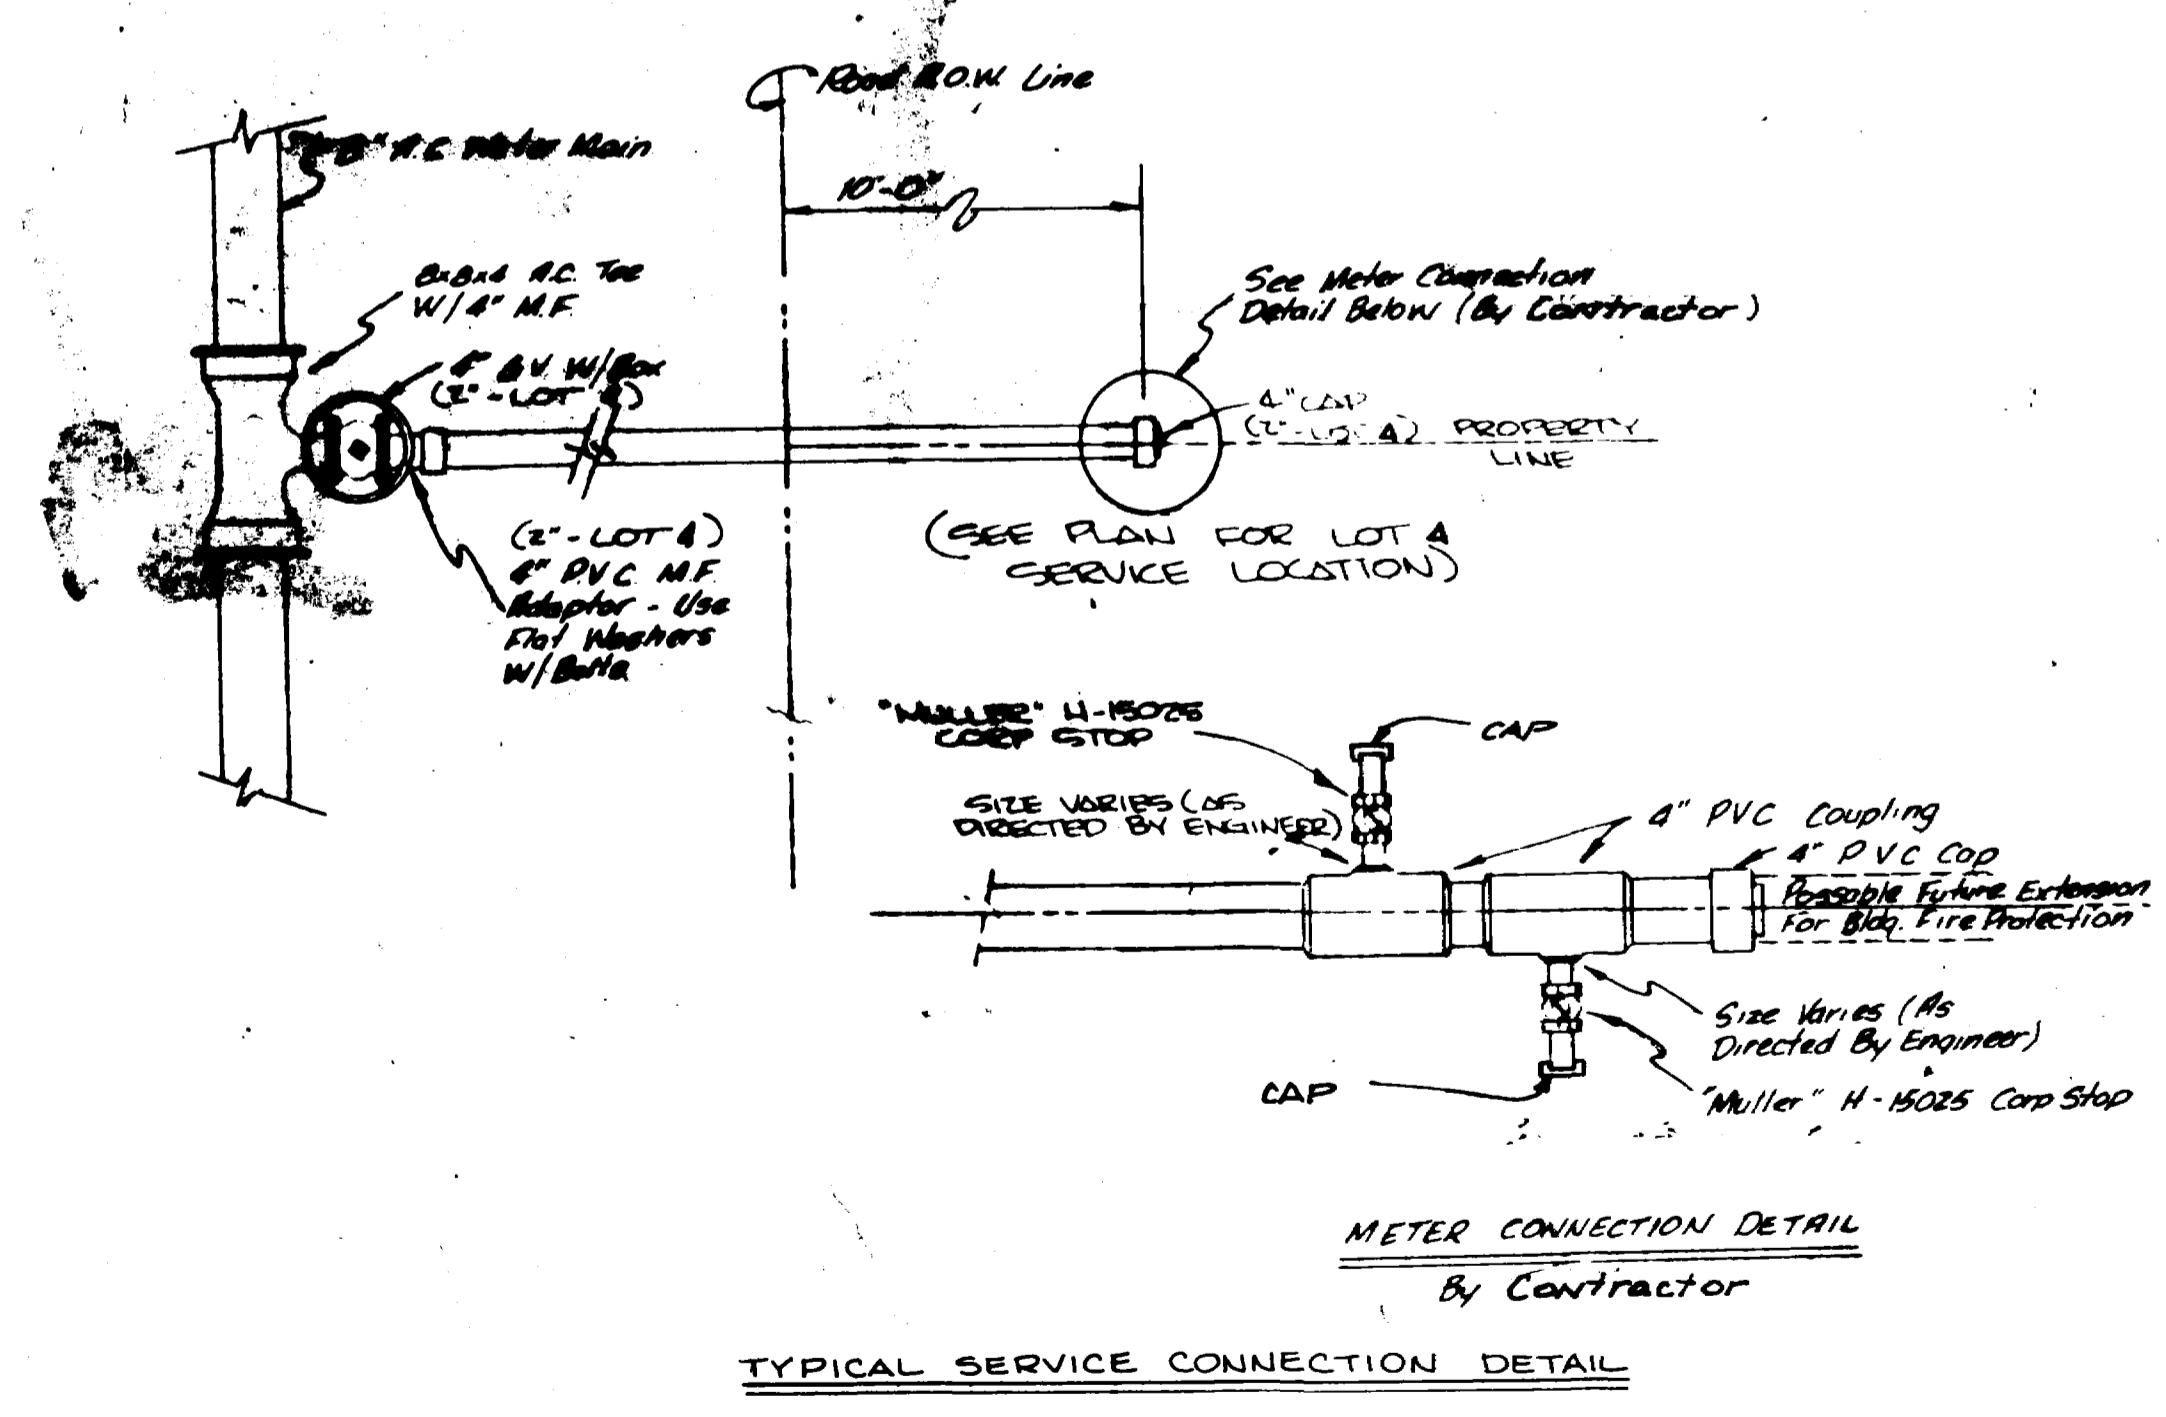 Road R.O.W. Line
8" A.C. Water Main
10'-0"
8x8x4 A.C. Tee
W/4" M.F.
See Meter Connection
Detail Below (By Contractor)
4" G.V. W/Box
(2"-LOT 4)
4" CAP
(2"-LOT 4) PROPERTY
LINE
(2"-LOT 4)
4" P.V.C. M.F.
Adaptor - Use
Flat Washers
W/Bolts
(SEE PLAN FOR LOT 4
SERVICE LOCATION)
"MULLER" H-15025
CORP STOP
CAP
SIZE VARIES (AS
DIRECTED BY ENGINEER)
4" PVC Coupling
4" PVC Cap
Possable Future Extension
For Bldg. Fire Protection
Size Varies (As
Directed By Engineer)
CAP
"Muller" H-15025 Corp Stop
METER CONNECTION DETAIL
By Contractor
TYPICAL SERVICE CONNECTION DETAIL